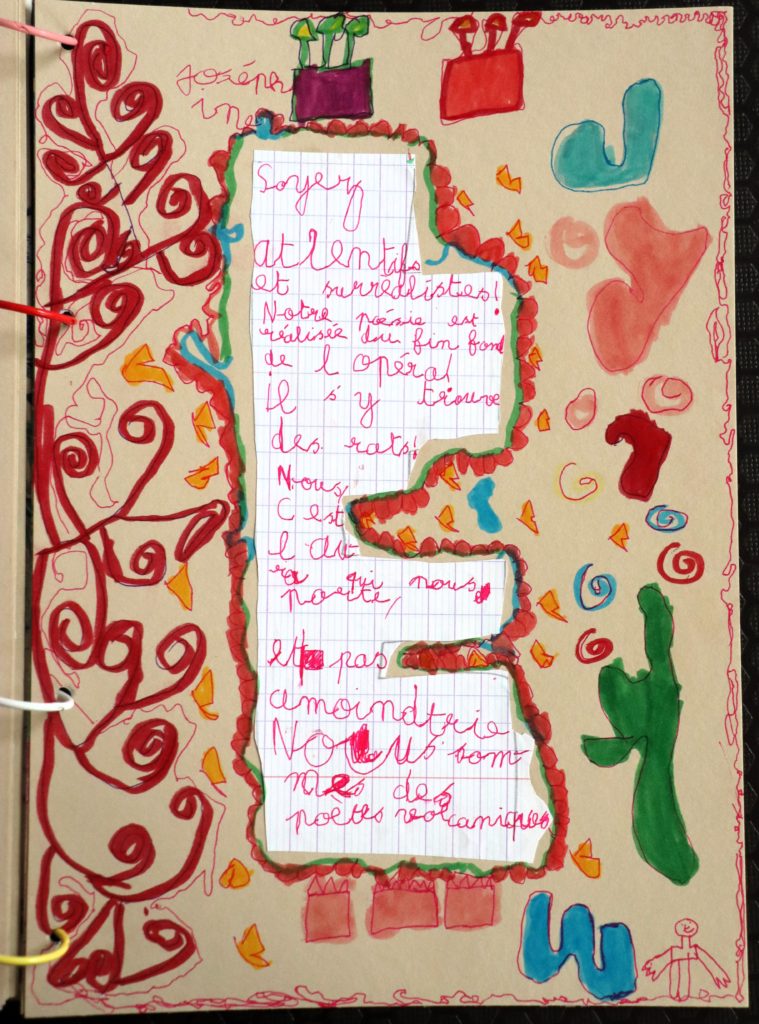 Joséph
ine
Soyez
atlentifs
et surréalistes!
Notre poésie est
réalisée du fin fond
de l opéra!
il s'y trouve
des rats!
Nous
C est
l au
ra qui nous
porte,
et pas
amoindtrie
Nous som
mes des
poètes volcaniques